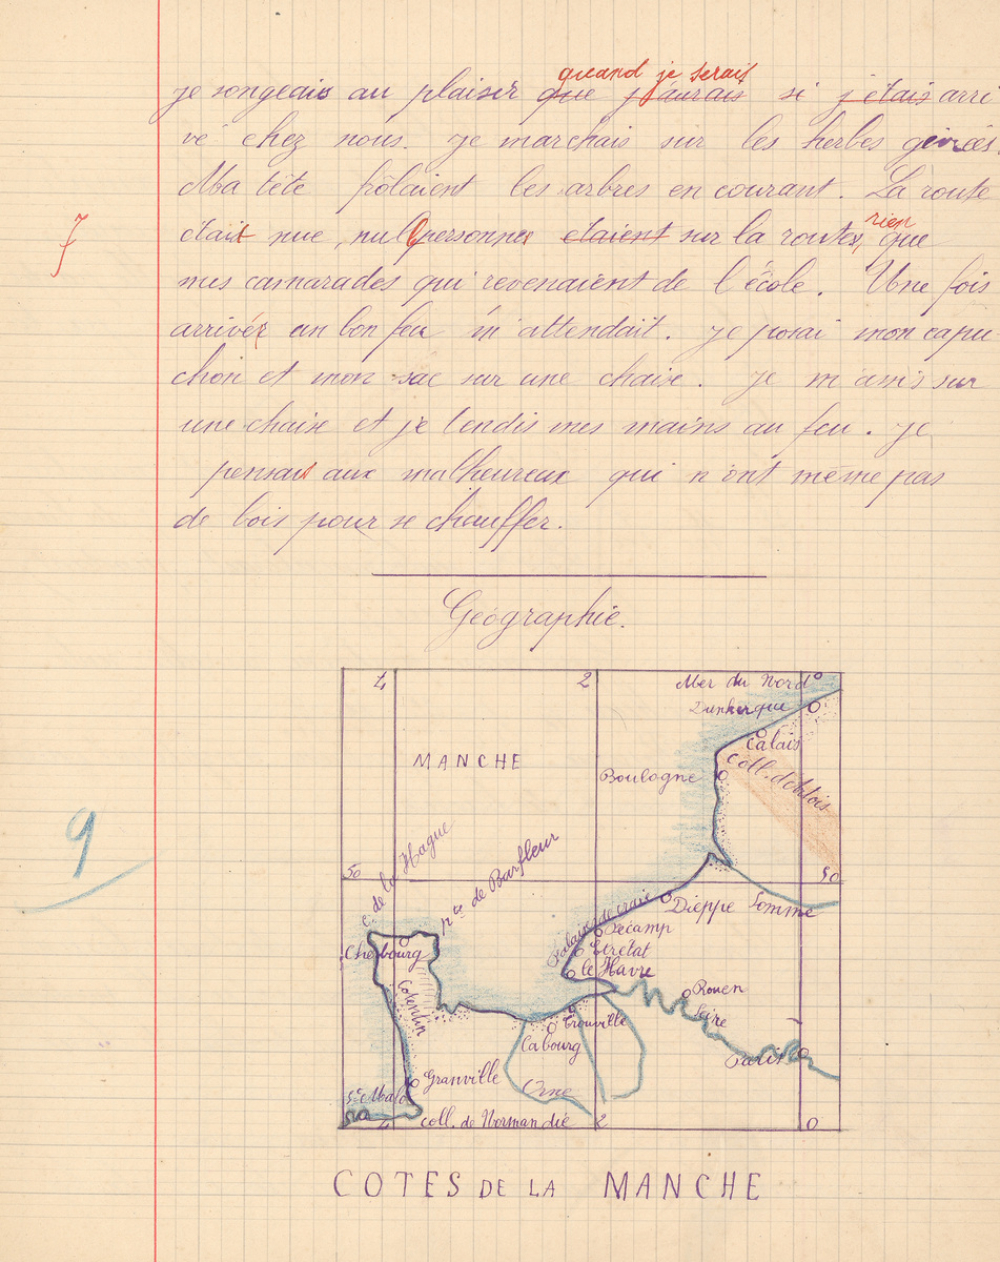 quand je serais
je songeais au plaisir que j'aurais si j'étais arri
vé chez nous. je marchais sur les herbes givrées.
Ma tête frôlaient les arbres en courant. La route
rien
7 était nue, nulle personne étaient sur la route, que
mes camarades qui revenaient de l'école. Une fois
arrivér un bon feu m'attendait. je posai mon capu
chon et mon sac sur une chaise. je m'amis sur
une chaise et je tendis mes mains au feu. je
pensais aux malheureux qui n'ont même pas
de bois pour se chauffer.
Géographie.
4 2 Mer du Nord 0
Dunkerque
Calais
MANCHE
Coll. d'Artois
Boulogne
9
C. de la Hague
Pte de Barfleur
50 50
Falaises de craie
Dieppe Somme
Fécamp
Etretat
Cherbourg
le Havre
Cotentin
Rouen
Seine
Trouville
Cabourg
Paris
Granville
Orne
St Malo
4 coll. de Normandie 2 0
COTES DE LA MANCHE